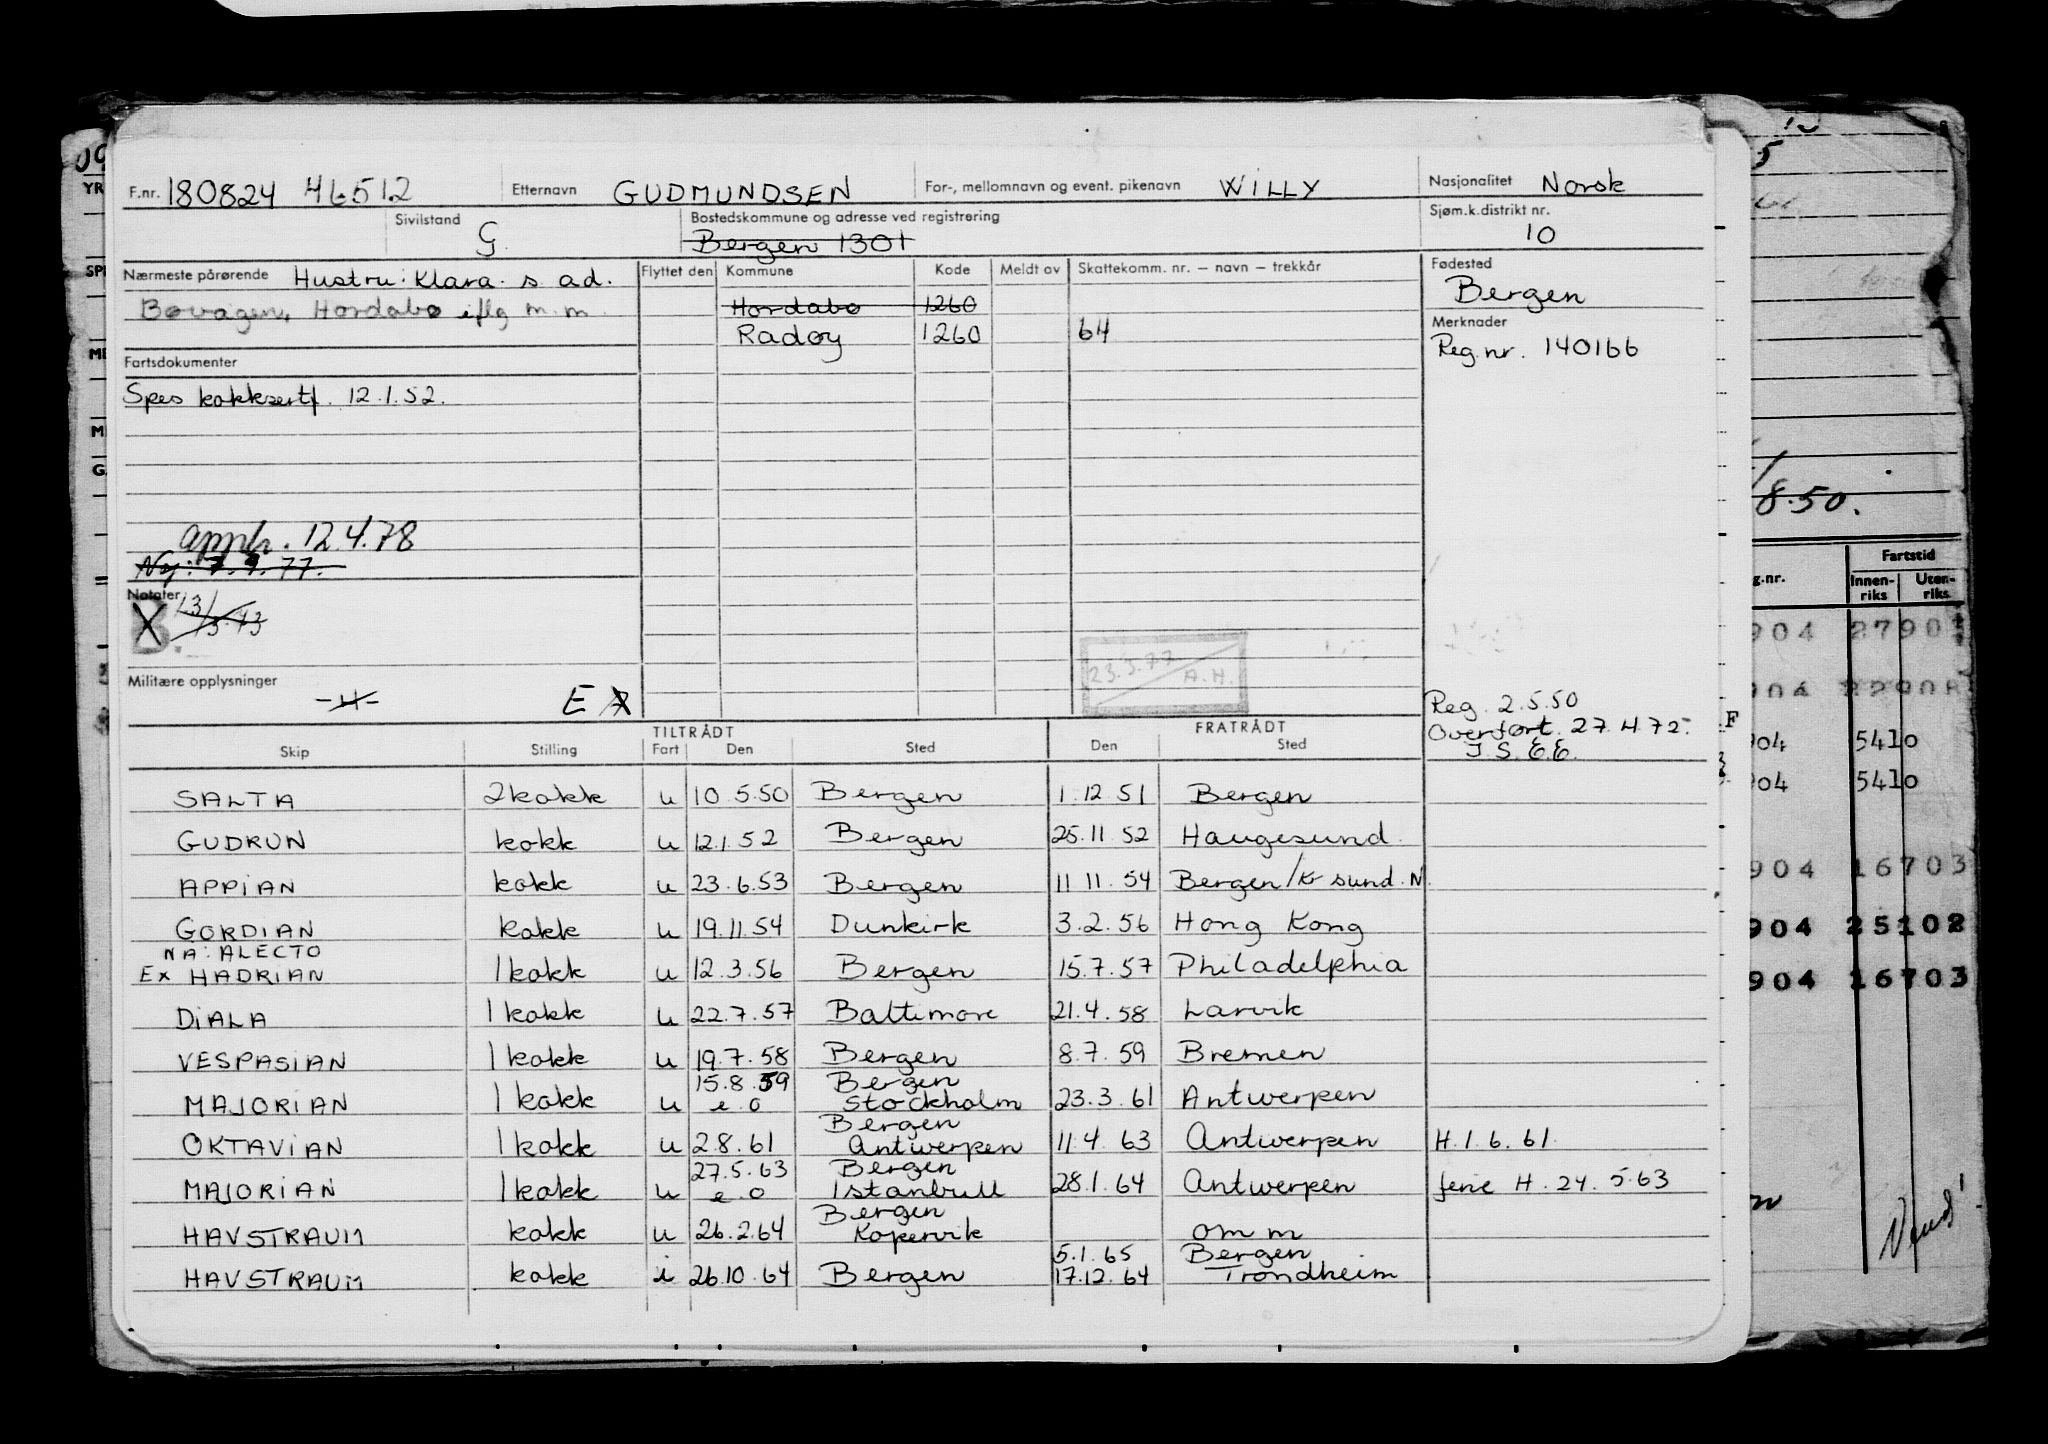 F.nr. 180824 46512 Etternavn GUDMUNDSEN For-, mellomnavn og event. pikenavn WILLY Nasjonalitet Norsk
Sivilstand G. Bostedskommune og adresse ved registrering Bergen 1301 Sjøm.k.distrikt nr. 10
Nærmeste pårørende Hustru: Klara. s. ad. Flyttet den Kommune Kode Meldt av Skattekomm. nr. – navn – trekkår Fødested
Bergen
Bøvågen, Hordabø iflg m.m. Hordabø 1260
Merknader
Radøy 1260 64 Reg.nr. 140166
Fartsdokumenter
Spes kokksertf. 12.1.52.
12.4.78
Ny: 7.9.77.
Notater
B. 13/
Militære opplysninger -H- E
23.3.77 A.H.
Reg. 2.5.50
Overført. 27.4.72.
TILTRÅDT FRATRÅDT
Skip Stilling Fart Den Sted Den Sted
SALTA 2kokk u 10.5.50 Bergen 1.12.51 Bergen
GUDRUN kokk u 12.1.52 Bergen 25.11.52 Haugesund.
APPIAN kokk u 23.6.53 Bergen 11.11.54 Bergen/Kr sund.N.
GORDIAN kokk u 19.11.54 Dunkirk 3.2.56 Hong Kong
NA: ALECTO
Ex HADRIAN 1kokk u 12.3.56 Bergen 15.7.57 Philadelphia
DIALA 1kokk u 22.7.57 Baltimore 21.4.58 Larvik
VESPASIAN 1kokk u 19.7.58 Bergen 8.7.59 Bremen
15.8.59 Bergen
MAJORIAN 1kokk u e.o Stockholm 23.3.61 Antwerpen
Bergen
OKTAVIAN 1kokk u 2.8.61 Antwerpen 11.4.63 Antwerpen H.1.6.61.
27.5.63 Bergen
MAJORIAN 1kokk u e.o Istanbull 28.1.64 Antwerpen ferie H.24.5.63
Bergen
HAVSTRAUM kokk u 26.2.64 Kopervik om m
5.1.65 Bergen
HAVSTRAUM kokk i 26.10.64 Bergen 17.12.64 Trondheim
8.50.
Fartstid
g.nr. Innen-riks Uten-riks
904 27901
904 22908
904 5410
904 5410
904 16703
904 25102
904 16703